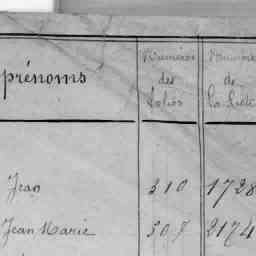 prénoms
Numéros
des
folios
Numéros
de
Jean 310 1728
Jean Marie 307 2174